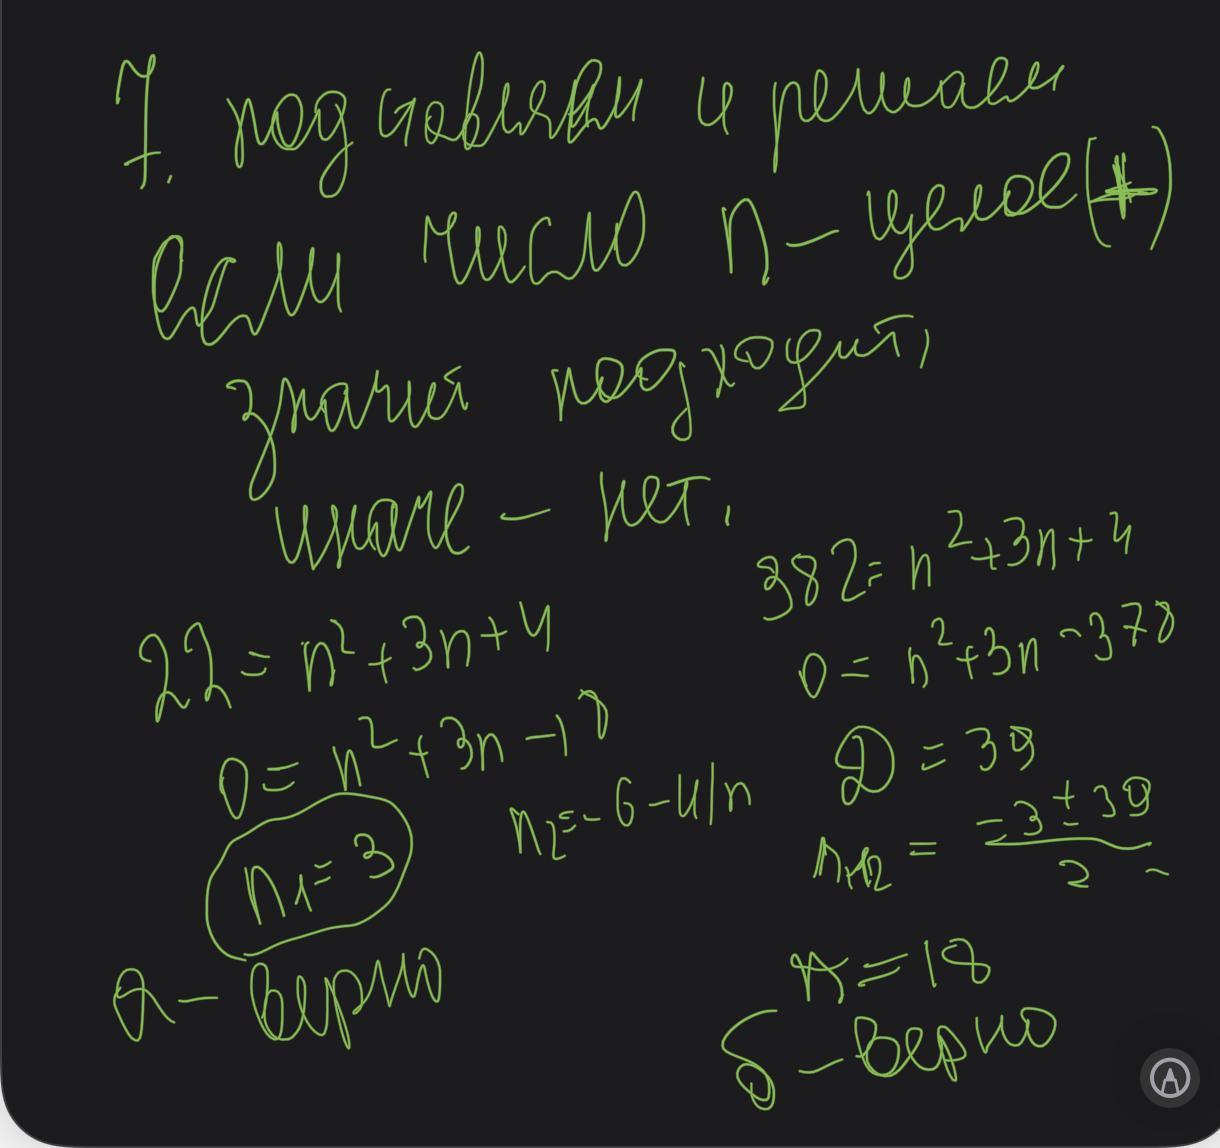 7. подставляем и решаем
если число n – целое (+)
значит подходит,
иначе – нет.
22 = n² + 3n + 4
0 = n² + 3n - 18
n₁ = 3
n₂ = -6 - н/п
а – верно
382 = n² + 3n + 4
0 = n² + 3n - 378
D = 39
= -3 ± 39 / 2
n = 18
б – верно